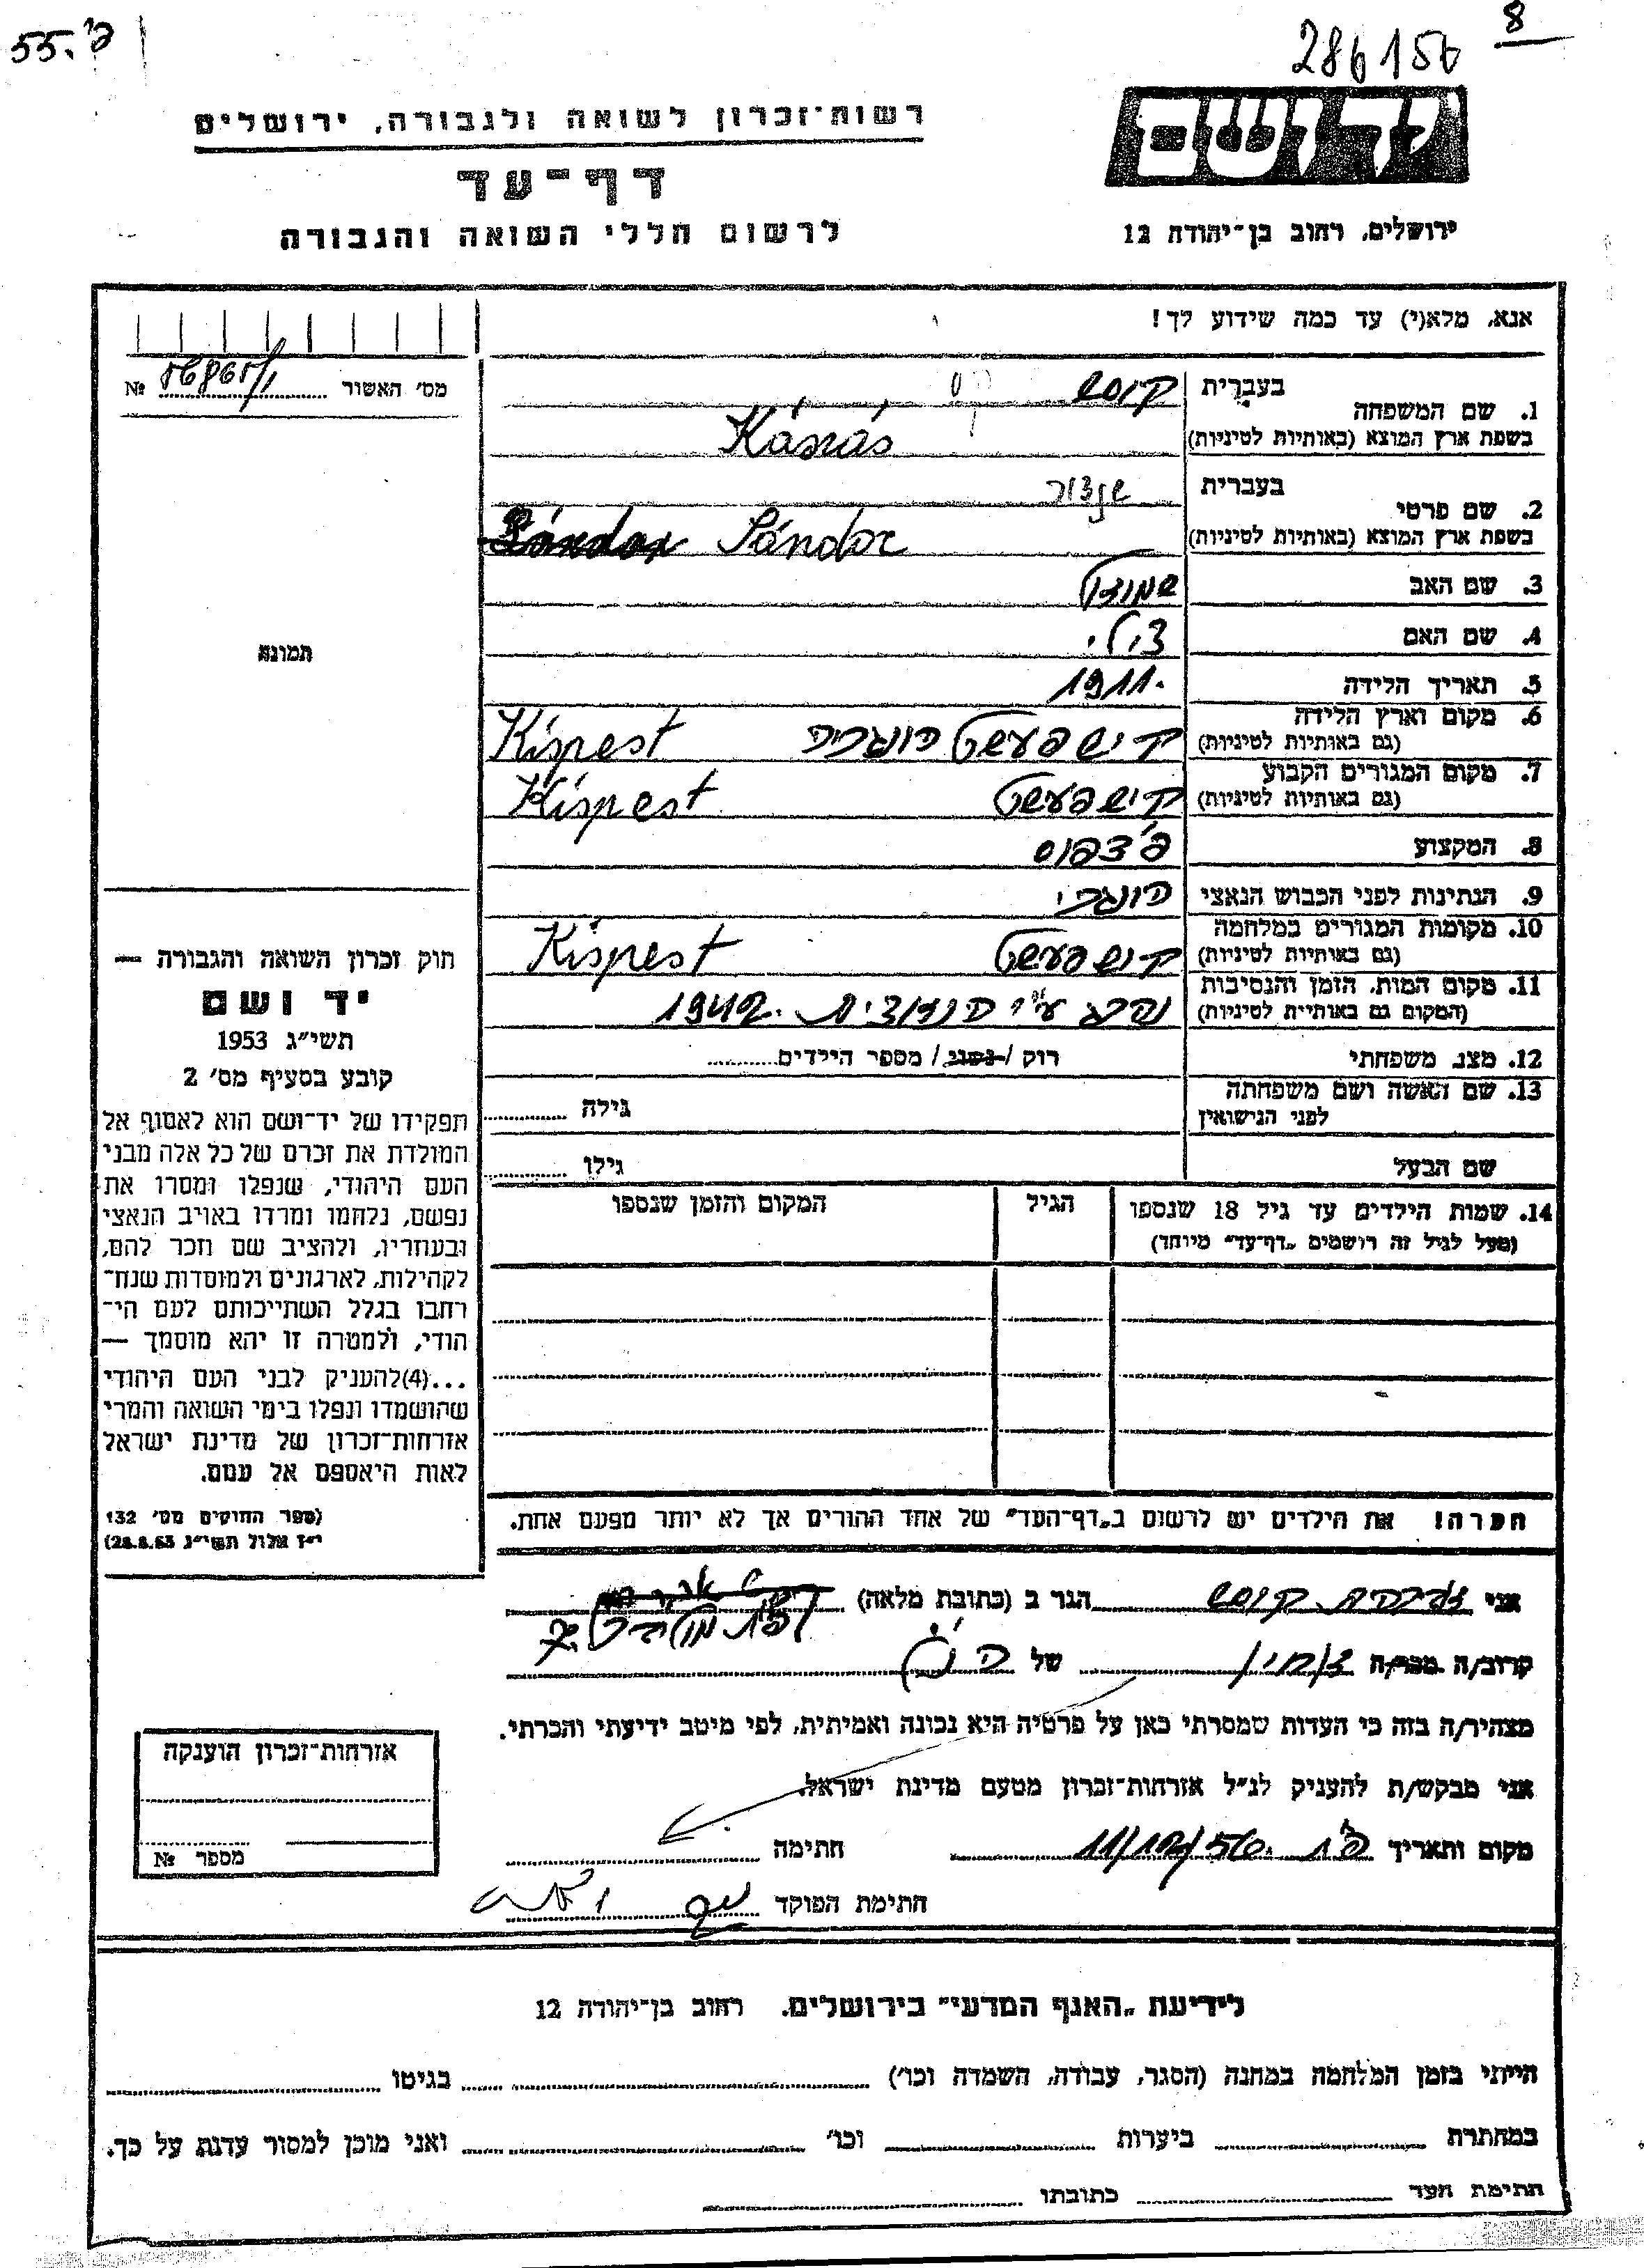 55. פ'
8
286156
רשות־זכרון לשואה ולגבורה, ירושלים
דף־עד
לרשום חללי השואה והגבורה
יד ושם
ירושלים, רחוב בן־יהודה 12
אנא, מלא(י) עד כמה שידוע לך!
מס׳ האשור №
1. שם המשפחה
בעברית
בשפת ארץ המוצא (באותיות לטיניות)
2. שם פרטי
בעברית
בשפת ארץ המוצא (באותיות לטיניות) Sándor
3. שם האב
4. שם האם
5. תאריך הלידה 1911.
6. מקום וארץ הלידה
(גם באותיות לטיניות) קישפעשט הונגריה Kispest
7. מקום המגורים הקבוע
(גם באותיות לטיניות) קישפעשט Kispest
8. המקצוע
9. הנתינות לפני הכבוש הנאצי הונגרי
10. מקומות המגורים במלחמה
(גם באותיות לטיניות) קישפעשט Kispest
11. מקום המות, הזמן והנסיבות
(המקום גם באותיית לטיניות) נהרג ע״י הנאצים. 1942
12. מצב משפחתי רוק / נשוי / מספר הילדים
13. שם האשה ושם משפחתה
לפני הנישואין גילה
שם הבעל גילו
14. שמות הילדים עד גיל 18 שנספו
(מעל לגיל זה רושמים „דף־עד״ מיוחד)
הגיל
המקום והזמן שנספו
הערה! את הילדים יש לרשום ב„דף־העד״ של אחד ההורים אך לא יותר מפעם אחת.
תמונה
חוק זכרון השואה והגבורה —
יד ושם
תשי״ג 1953
קובע בסעיף מס׳ 2
תפקידו של יד־ושם הוא לאסוף אל
המולדת את זכרם של כל אלה מבני
העם היהודי, שנפלו ומסרו את
נפשם, נלחמו ומרדו באויב הנאצי
ובעוזריו, ולהציב שם וזכר להם,
לקהילות, לארגונים ולמוסדות שנח־
רבו בגלל השתייכותם לעם הי־
הודי, ולמטרה זו יהא מוסמך —
...(4)להעניק לבני העם היהודי
שהושמדו ונפלו בימי השואה והמרי
אזרחות־זכרון של מדינת ישראל
לאות היאספם אל עמם.
(ספר החוקים מס׳ 132
י״ז אלול תשי״ג 28.8.53)
אני הגר ב (כתובת מלאה)
קרוב/ה מכר/ה של
מצהיר/ה בזה כי העדות שמסרתי כאן על פרטיה היא נכונה ואמיתית, לפי מיטב ידיעתי והכרתי.
אני מבקש/ת להעניק לנ״ל אזרחות־זכרון מטעם מדינת ישראל.
מקום ותאריך חתימה
חתימת הפוקד
אזרחות־זכרון הוענקה
מספר №
לידיעת „האגף המדעי״ בירושלים. רחוב בן־יהודה 12
הייתי בזמן המלחמה במחנה (הסגר, עבודה, השמדה וכו׳) בגיטו
במחתרת ביערות וכו׳ ואני מוכן למסור עדות על כך.
חתימת העד כתובתו